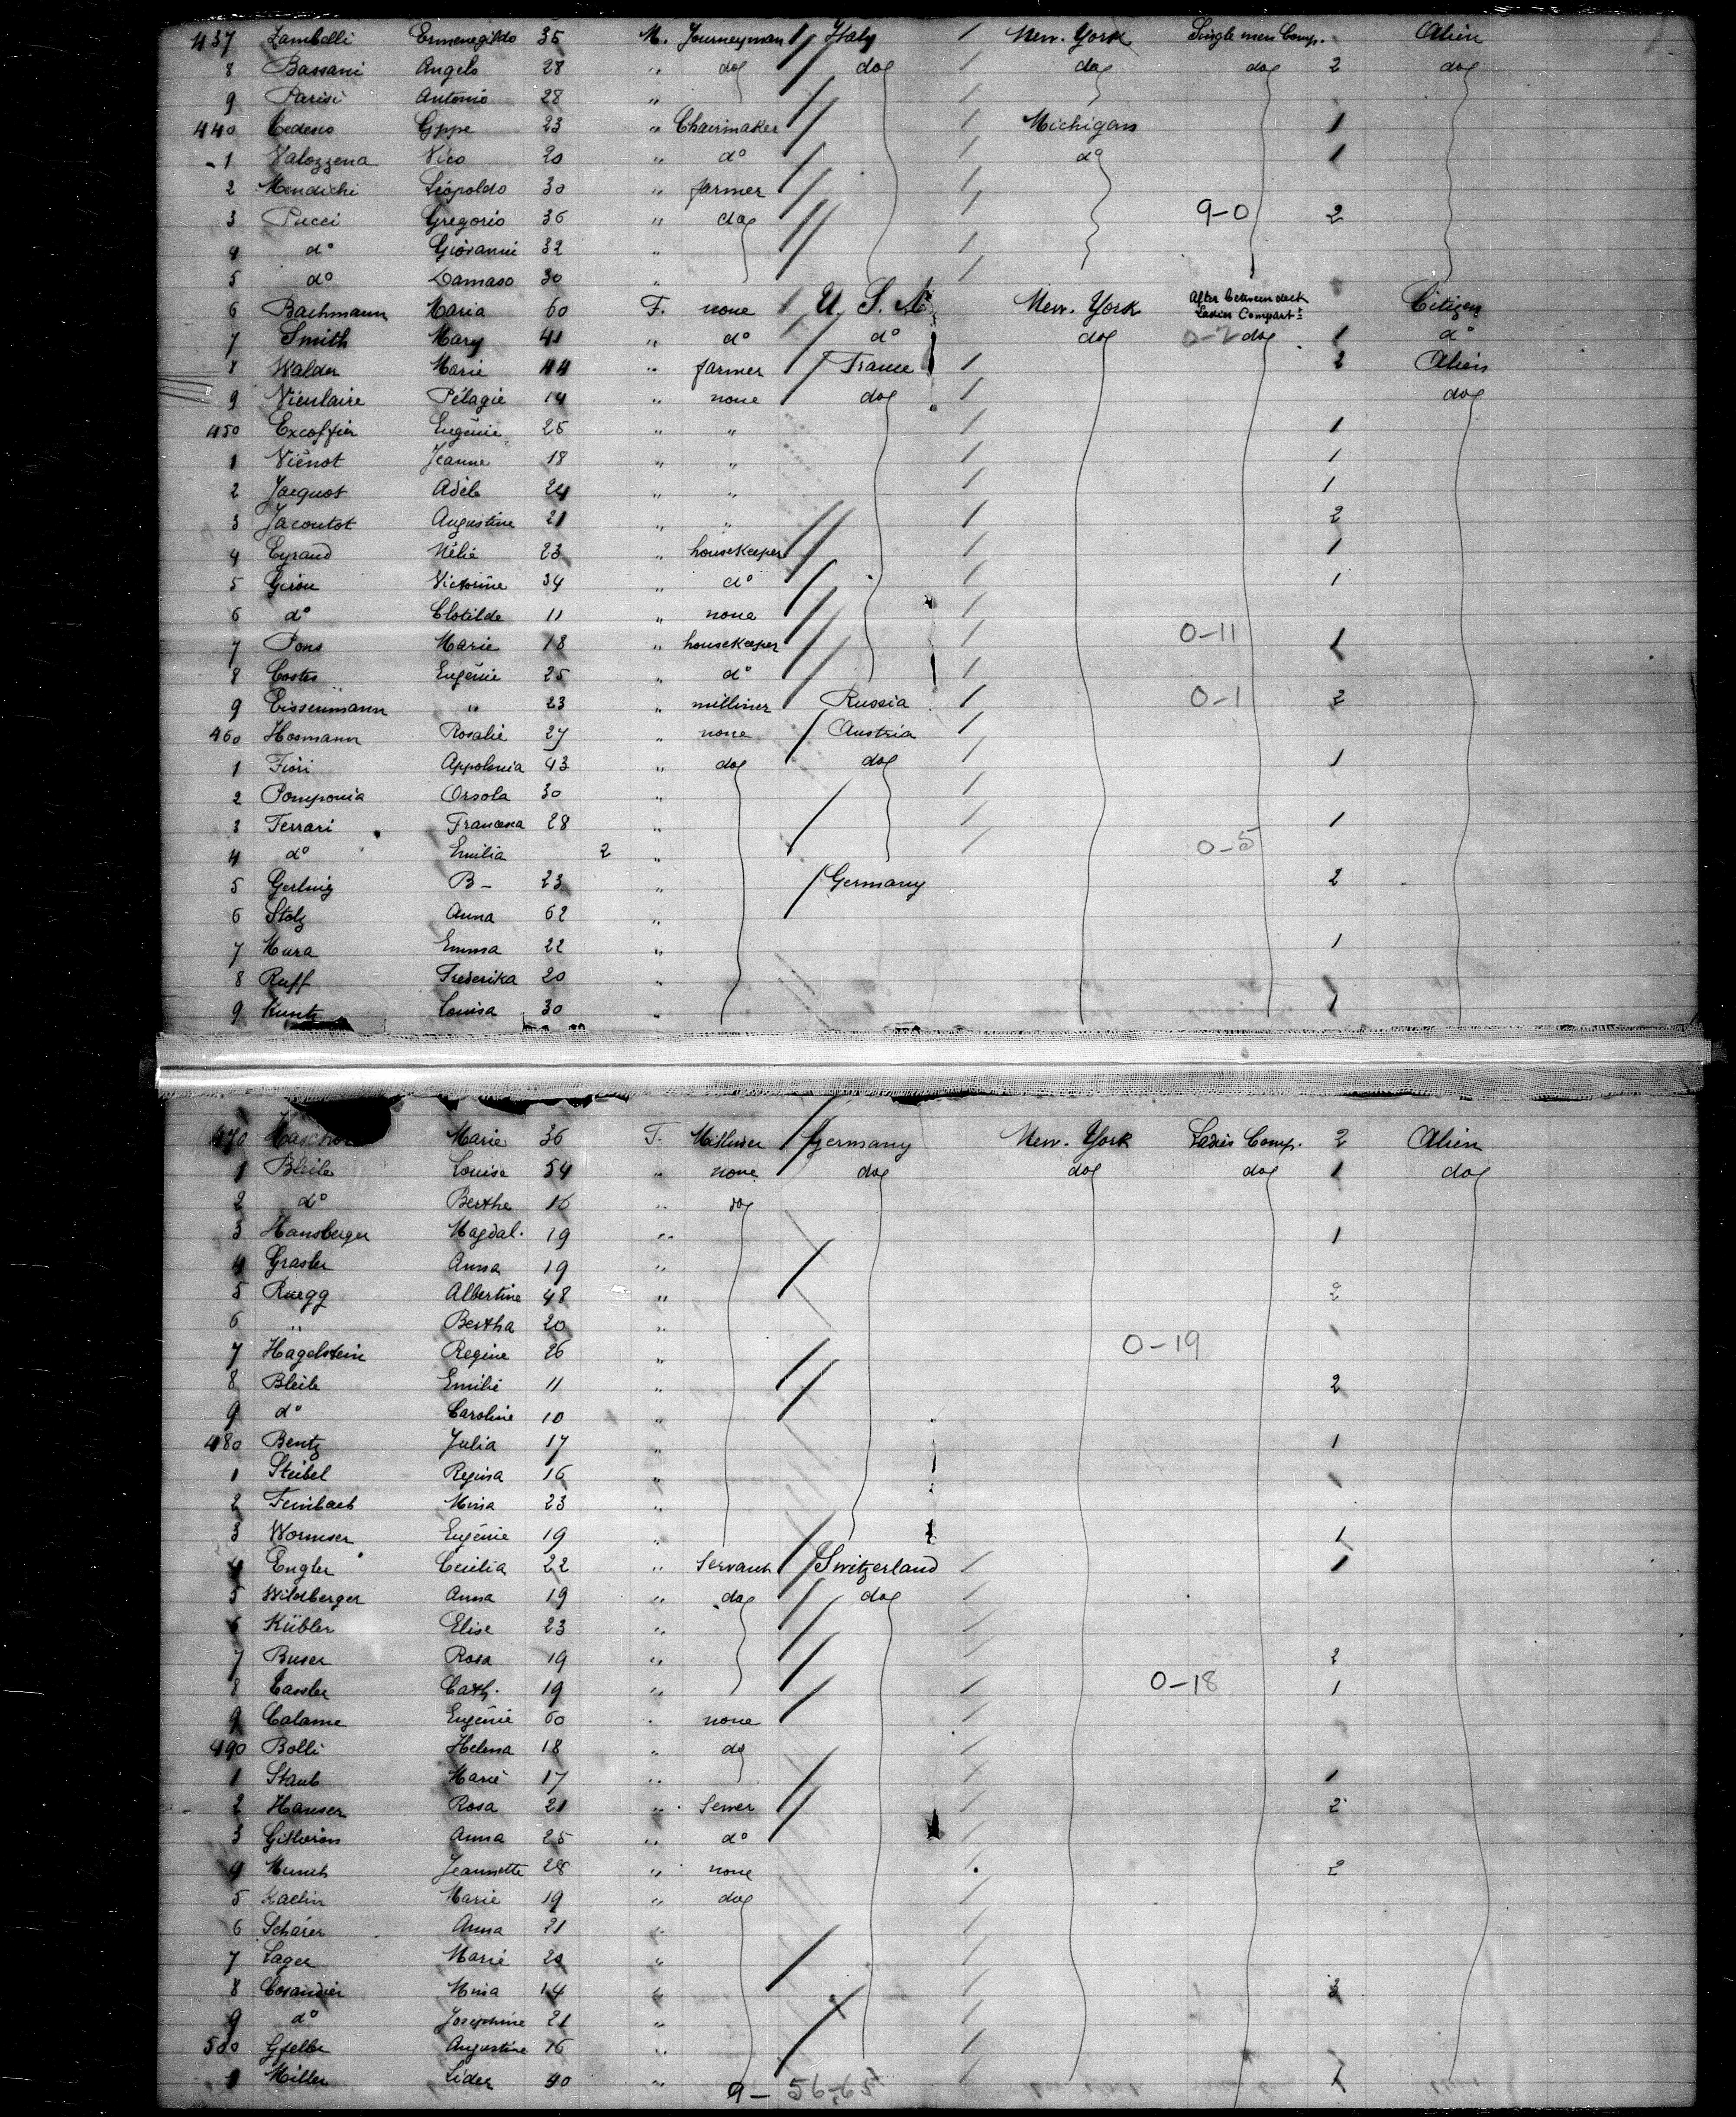 437 Zambelli Ermenegildo 35 M. Journeyman Italy New-York Single men Comp. Alien
8 Bassani Angelo 28 " do do do do 2 do
9 Parisi Antonio 28 "
440 Cedeno Gppe 23 " Chairmaker Michigan 1
1 Valozzena Vico 20 " do do 1
2 Mendichi Leopoldo 30 " farmer
3 Pucci Gregorio 36 " do 9-0 2
4 do Giovanni 32 "
5 do Damaso 30 "
6 Bachmann Maria 60 F. none U. S. A. New-York After between deck Ladies Compart. Citizen
7 Smith Mary 41 " do do do 0-2 do 1 do
8 Walder Marie 44 " farmer France 2 Alien
9 Vieulaire Pélagie 14 " none do do
450 Excoffier Eugénie 25 " " 1
1 Viénot Jeanne 18 " " 1
2 Jacquot Adèle 24 " " 1
3 Jacoutot Augustine 21 " " 2
4 Eyraud Nélie 23 " housekeeper 1
5 Girou Victorine 34 " do 1
6 do Clotilde 11 " none
7 Pons Marie 18 " housekeeper 0-11 1
8 Costes Eugénie 25 " do
9 Eissenmann " 23 " milliner Russia 0-1 2
460 Hosmann Rosalie 27 " none Austria
1 Fiori Appolonia 43 " do do 1
2 Pomponia Orsola 30 "
3 Ferrari Francesca 28 " 1
4 do Emilia 2 " 0-5
5 Gerling B- 23 " Germany 2
6 Stolz Anna 62 "
7 Mura Emma 22 " 1
8 Ruff Frederika 20 "
9 Kuntz Louisa 30 " 1
470 Marie 36 F. Milliner Germany New-York Ladies Comp. 2 Alien
1 Bleile Louise 54 " none do do do 1 do
2 do Berthe 16 " do
3 Hansberger Magdal. 19 " 1
4 Grasler Anna 19 "
5 Ruegg Albertine 48 " 2
6 " Bertha 20 "
7 Hagelstein Regine 26 " 0-19
8 Bleile Emilie 11 " 2
9 do Caroline 10 "
480 Bentz Julia 17 " 1
1 Steibel Regina 16 "
2 Mina 23 "
3 Wormser Eugénie 19 " 1
4 Engler Cecilia 22 " Servant Switzerland 1
5 Wildberger Anna 19 " do do
6 Kübler Elise 23 "
7 Buser Rosa 19 " 2
8 Cassler Cath. 19 " 0-18 1
9 Calame Eugénie 60 " none
490 Bolli Helena 18 " do
1 Staub Marie 17 " 1
2 Hauser Rosa 21 " Sewer 2
3 Gilliéron Anna 25 " do
4 Munch Jeannette 28 " none 2
5 Kaelin Marie 19 " do
6 Schärer Anna 21 "
7 Lager Marie 20 "
8 Cosandier Mina 14 " 3
9 do Josephine 21 "
500 Gfeller Augustine 16 "
1 Miller Lider 40 " 1
9- 56-65